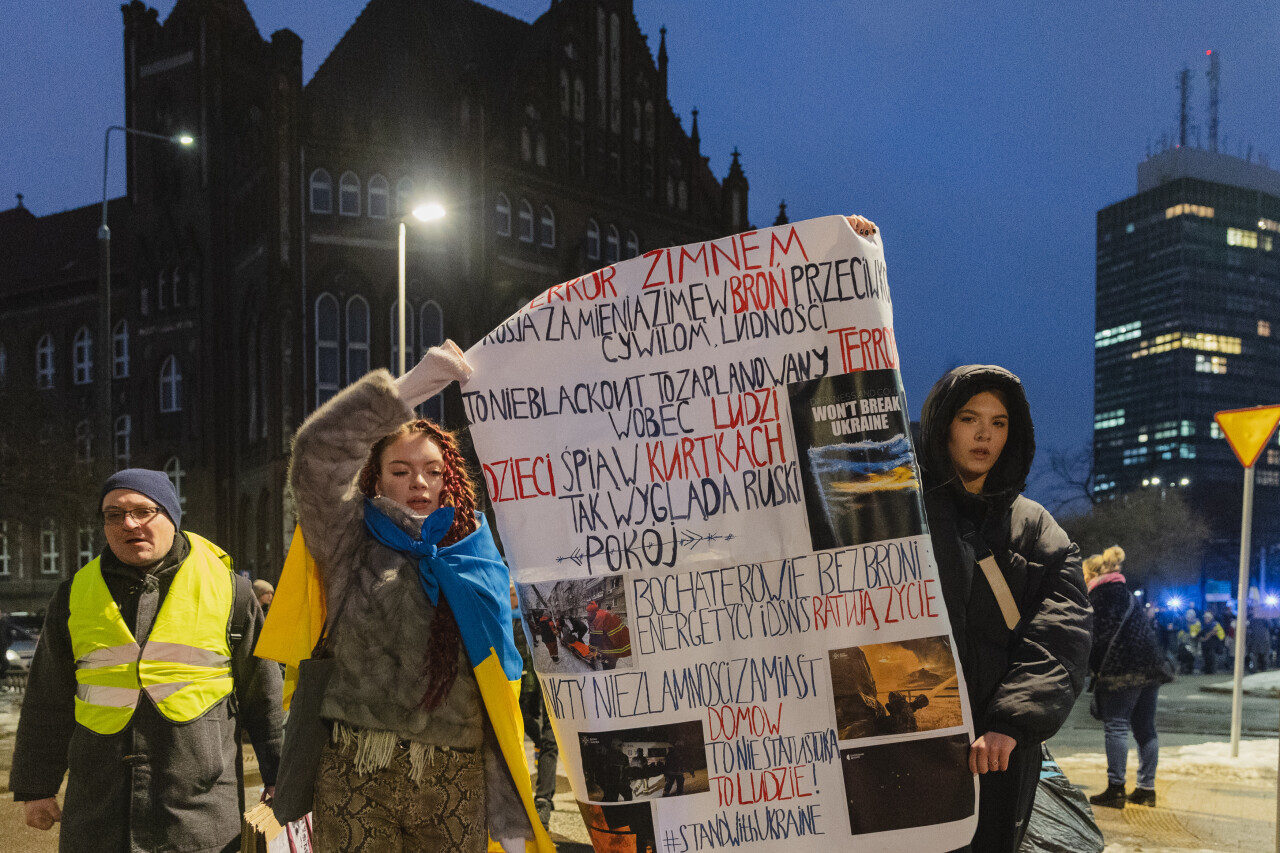 TERROR ZIMNEM
ROSJA ZAMIENIA ZIMĘ W BROŃ PRZECIWKO
CYWILOM, LUDNOŚCI
TO NIE BLACKOUT TO ZAPLANOWANY TERROR
WOBEC LUDZI
DZIECI ŚPIĄ W KURTKACH
TAK WYGLĄDA RUSKI
POKÓJ
WON'T BREAK
UKRAINE
BOCHATEROWIE BEZ BRONI
ENERGETYCY I DSNS RATUJĄ ŻYCIE
NKTY NIEZŁAMNOŚCI ZAMIAST
DOMÓW
TO NIE STATYSTYKA
TO LUDZIE!
#STANDWithUKRAINE